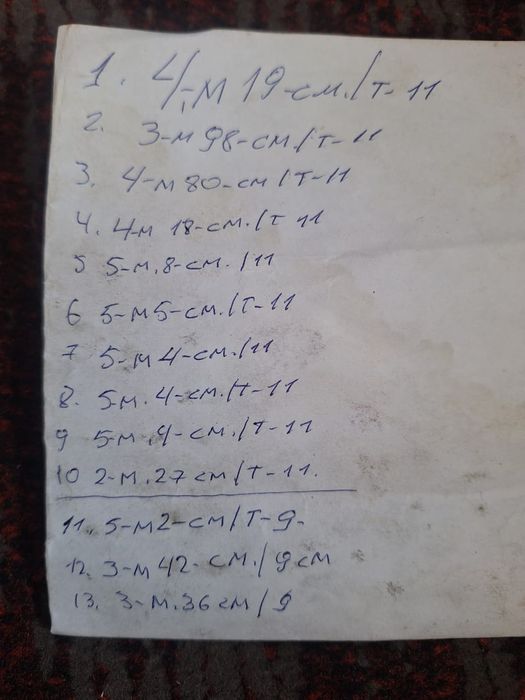 1. 4-м 19-см./т-11
2. 3-м 98-см./т-11
3. 4-м 80-см/т-11
4. 4-м 18-см./т 11
5 5-м.8-см./11
6 5-м5-см./т-11
7 5-м4-см./11
8. 5-м.4-см./т-11
9 5-м.4-см./т-11
10 2-м.27см/т-11.
11. 5-м2-см/т-9-
12. 3-м42-см./9см
13. 3-м.36см/9